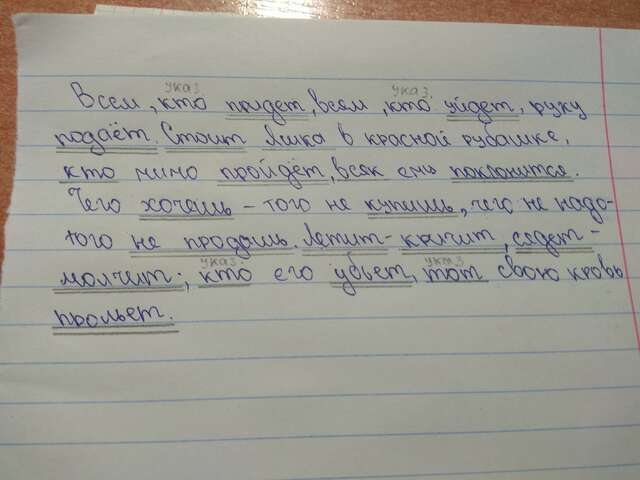 указ. указ.
Всем, кто придет, всем, кто уйдет, руку
подаёт. Стоит Яшка в красной рубашке,
кто мимо пройдёт, всяк ему поклонится.
Чего хочешь – того не купишь, чего не надо-
того не продашь. Летит-кричит, сядет-
указ. указ
молчит; кто его убьет, тот свою кровь
прольет.